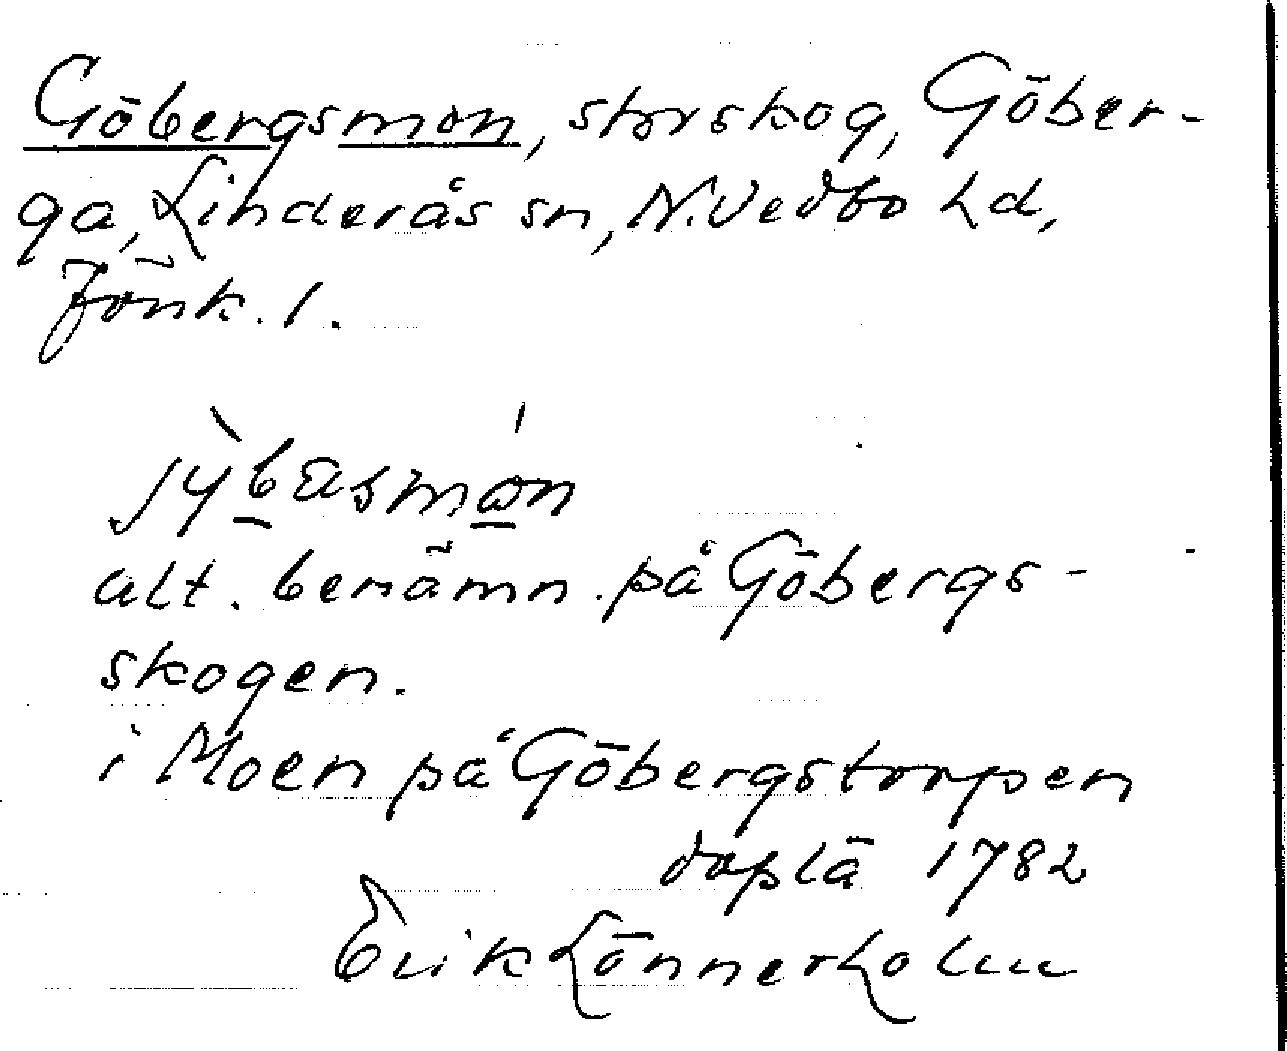 Göbergsmon, storskog, Göber-
ga, Linderås sn, N. Vedbo hd,
Jönk. l.
jỳbasmón
alt. benämn. på Göbergs-
skogen.
i Moen på Göbergstorpen
doplä 1782
Erik Lönnerholm